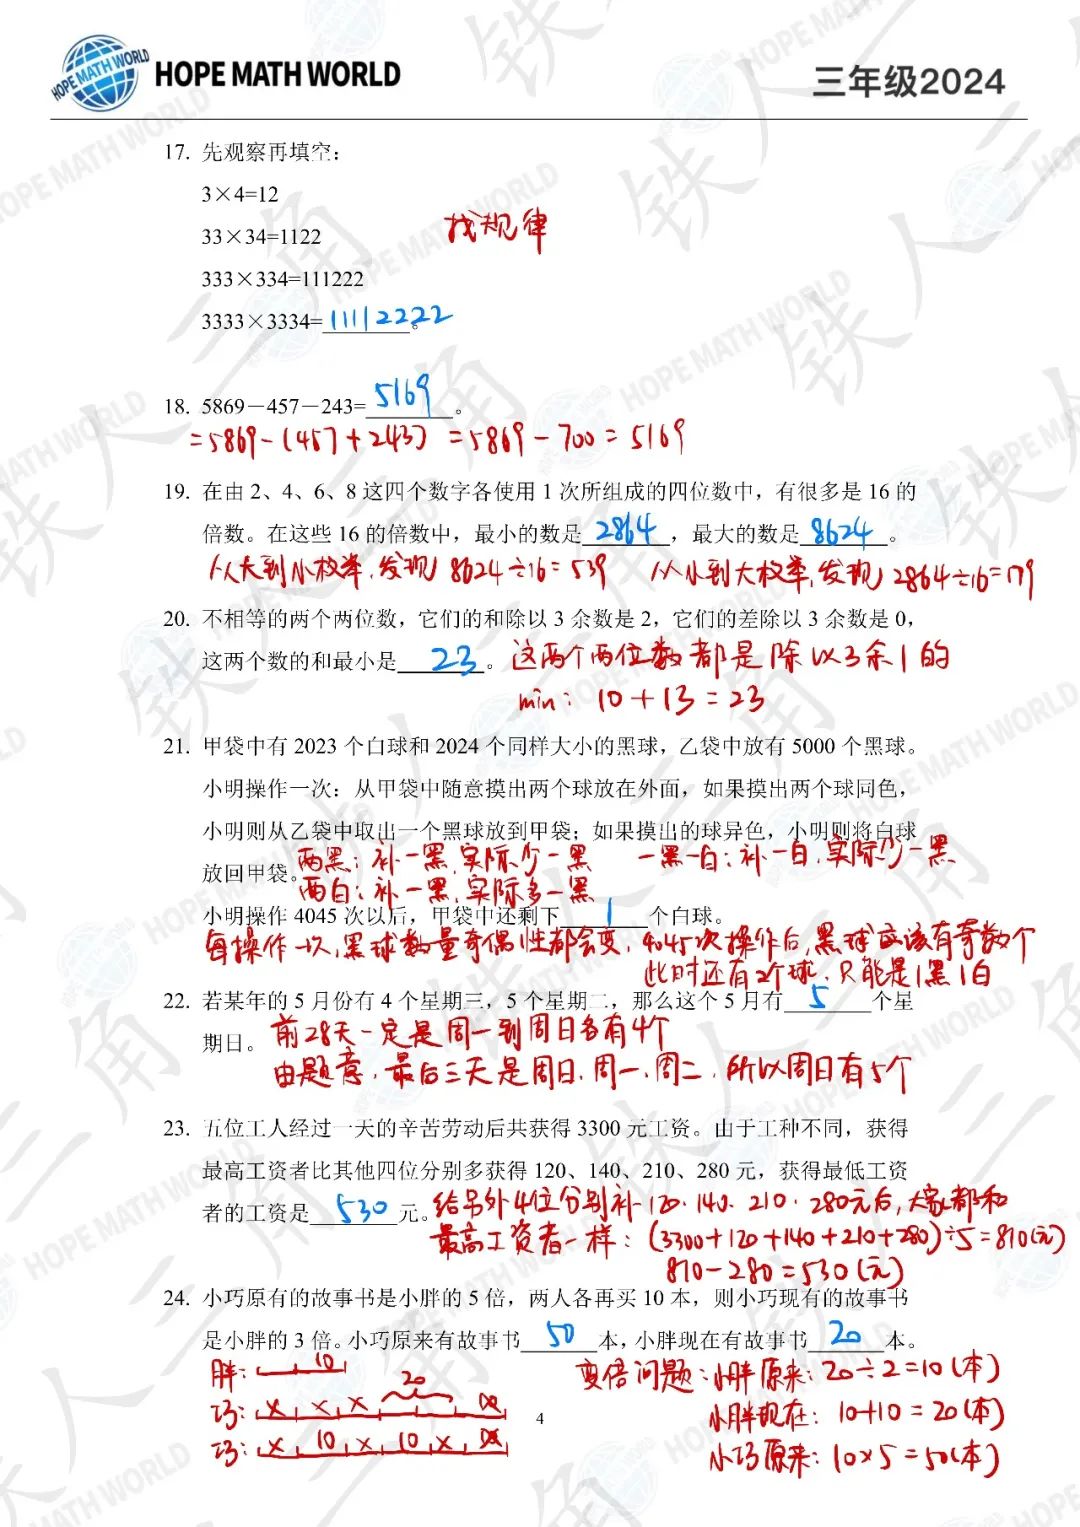 HOPE MATH WORLD
三年级2024
17. 先观察再填空：
3×4=12
33×34=1122
找规律
333×334=111222
3333×3334=11112222。
18. 5869－457－243=5169。
=5869-(457+243) =5869-700=5169
19. 在由 2、4、6、8 这四个数字各使用 1 次所组成的四位数中，有很多是 16 的
倍数。在这些 16 的倍数中，最小的数是2864，最大的数是8624。
从大到小枚举,发现8624÷16=539 从小到大枚举,发现2864÷16=179
20. 不相等的两个两位数，它们的和除以 3 余数是 2，它们的差除以 3 余数是 0，
这两个数的和最小是23。这两个两位数都是除以3余1的
min: 10+13=23
21. 甲袋中有 2023 个白球和 2024 个同样大小的黑球，乙袋中放有 5000 个黑球。
小明操作一次：从甲袋中随意摸出两个球放在外面，如果摸出两个球同色，
小明则从乙袋中取出一个黑球放到甲袋；如果摸出的球异色，小明则将白球
两黑：补一黑,实际少一黑 一黑一白：补一白,实际少一黑
放回甲袋。
两白：补一黑,实际多一黑
小明操作 4045 次以后，甲袋中还剩下1个白球。
每操作一次,黑球数量奇偶性都会变,4045次操作后,黑球应该有奇数个
此时还有2个球,只能是1黑1白
22. 若某年的 5 月份有 4 个星期三，5 个星期二，那么这个 5 月有5个星
期日。前28天一定是周一到周日各有4个
由题意,最后三天是周日,周一,周二,所以周日有5个
23. 五位工人经过一天的辛苦劳动后共获得 3300 元工资。由于工种不同，获得
最高工资者比其他四位分别多获得 120、140、210、280 元，获得最低工资
者的工资是530元。给另外4位分别补120·140·210·280元后,大家都和
最高工资者一样：(3300+120+140+210+280)÷5=810(元)
810-280=530(元)
24. 小巧原有的故事书是小胖的 5 倍，两人各再买 10 本，则小巧现有的故事书
是小胖的 3 倍。小巧原来有故事书50本，小胖现在有故事书20本。
胖: 10
变倍问题：小胖原来：20÷2=10(本)
20
巧:
小胖现在：10+10=20(本)
巧: 10 10
小巧原来：10×5=50(本)
4